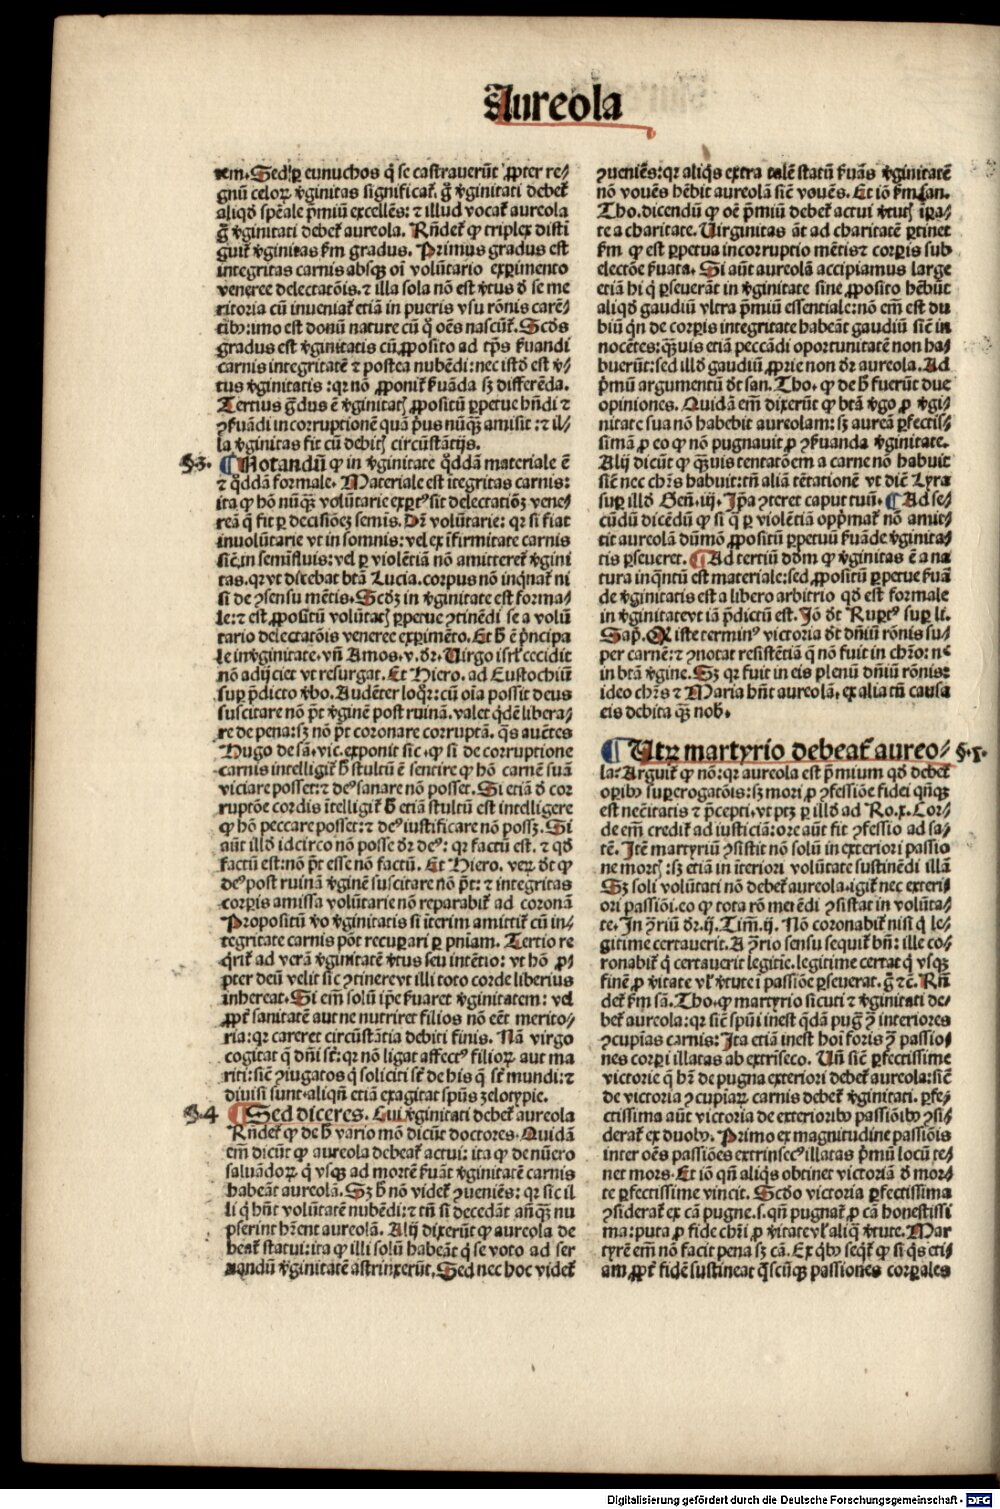 Aureola
rem. Sed ꝑ eunuchos q̇ se castraverūt ꝓpter re⸗
gnū celoꝝ v̓ginitas significat̉. g̊ v̓ginitati debet̉
aliqḋ spēale p̄miū excellēs: ⁊ illud vocat̉ aureola
g̊ v̓ginitati debet̉ aureola. Rn̄det̉ ꝙ triplex disti
guit̉ v̓ginitas ẜm gradus. Primus gradus est
integritas carnis absqꝫ oī volūtario exꝑimento
veneree delectatōis. ⁊ illa sola nō est v̓tus ḋ se me
ritoria cū inveniat̉ etiā in pueris vsu rōnis carē⸗
tibꝰ: imo est donū nature cū q̊ oēs nascūt̉. Scḋs
gradus est v̓ginitatis cū ꝓposito ad tp̄s ẜuandi
carnis integritatē ⁊ postea nubēdi: nec istḋ est v̓⸗
tus v̓ginitatis: qꝛ nō ꝓponit̉ ẜuāda sꝫ differēda.
Tertius g̊dus ē v̓ginitatꝭ ꝓpositū ꝑpetue hn̄di ⁊
ꝯẜuādi incorruptionē quā pri̓us nūqꝫ amisit: ⁊ il⸗
la v̓ginitas fit cū debitꝭ circūstātijs.
§.3. ¶ Notandū ꝙ in v̓ginitate q̊ddā materiale ē
⁊ q̊ddā formale. Materiale est ītegritas carnis:
ita ꝙ hō nūqꝫ volūtarie exꝑtꝰ sit delectatiōꝫ vene⸗
reā q̄ fit ꝑ decisiōeꝫ semīs. Dr̄ volūtarie: qꝛ si fiat
involūtarie vt in somnis: vel ex īfirmitate carnis
sic̄ in semīfluis: vel ꝑ violētiā nō amitteret̉ v̓gini
tas. qꝛ vt dicebat btā Lucia. corpus nō inq̇nat̉ ni
si de ꝯsensu mētis. Scḋꝫ in v̓ginitate est forma⸗
le: ⁊ est ꝓpositū volūtatꝭ ꝑpetue ꝯtinēdi se a volū
tario delectatōis veneree exꝑimēto. Et h̊ ē p̄ncipa
le in v̓ginitate. vn̄ Amos. v. dr̄. Virgo isrl̓ cecidit
nō adijciet vt resurgat. Et Hiero. ad Eustochiū
suꝑ p̄dicto v̓bo. Audēter loq̊r: cū oīa possit deus
suscitare nō pt̄ v̓ginē post ruinā. valet q̇dē libera⸗
re de pena: sꝫ nō pt̄ coronare corruptā. q̇s auētes
Hugo de sā. vic. exponit sic. ꝙ si de corruptione
carnis intelligit̉ h̊ stultū ē sentire ꝙ hō carnē suā
viciare posset: ⁊ deꝰ sanare nō posset. Si etiā ḋ cor
ruptōe cordis ītelligit̉ h̊ etiā stultū est intelligere
ꝙ hō peccare posset: ⁊ deꝰ iustificare nō possꝫ. Si
aūt illḋ idcirco nō posse dr̄ deꝰ: qꝛ factū est. ⁊ qḋ
factū est: nō pt̄ esse nō factū. Et Hiero. veꝝ dt̄ ꝙ
deꝰ post ruinā v̓ginē suscitare nō pt̄: ⁊ integritas
corꝑis amissa volūtarie nō reparabit̉ ad coronā
Propositū v̓o v̓ginitatis si īterim amittit̉ cū in⸗
tegritate carnis pōt recuꝑari ꝑ pn̄iam. Tertio re
q̇rit̉ ad verā v̓ginitatē v̓tus seu intētio: vt hō ꝓ⸗
pter deū velit sic ꝯtinere vt illi toto corde liberius
inhereat. Si em̄ solū ip̄e ẜuaret v̓ginitatem: vel
ꝓpt̓ sanitatē aut ne nutriret filios nō eēt merito⸗
ria: qꝛ careret circūstātia debiti finis. Nā virgo
cogitat q̄ dn̄i st̄: qꝛ nō ligat affectꝰ filioꝝ aut ma
riti: sic̄ ꝯiugatos q̇ soliciti st̄ de his q̄ st̄ mundi: ⁊
divisi sunt. aliqn̄ etiā exagitat sp̄us zelotypie.
§.4 ¶ Sed diceres. Cui v̓ginitati debet̉ aureola
Rn̄det̉ ꝙ de h̊ vario mō dicūt doctores. Quidā
em̄ dicūt ꝙ aureola debeat̉ actui: ita ꝙ de nūero
salvādoꝝ q̇ vsqꝫ ad mortē ẜuāt v̓ginitatē carnis
habeāt aureolā. Sꝫ h̊ nō videt̉ ꝯueniēs: qꝛ sic il
li q̇ hn̄t volūtatē nubēdi: ⁊ tn̄ si decedāt añqꝫ nu
pserint hr̄ent aureolā. Alij dixerūt ꝙ aureola de
beat̉ statui: ita ꝙ illi solū habeāt q̇ se voto ad ser
uandū v̓ginitatē astrinxerūt. Sed nec hoc videt̉
ꝯueniēs: qꝛ aliq̇s extra talē statū ẜuās v̓ginitatē
nō vouēs hēbit aureolā sic̄ vouēs. Et iō ẜm san.
Tho. dicendū ꝙ oē p̄miū debet̉ actui v̓tutꝭ īꝑa⸗
te a charitate. Virginitas āt ad charitatē ꝑtinet
ẜm ꝙ est ꝑpetua incorruptio mētis ⁊ corꝑis sub
electōe ẜuata. Si aūt aureolā accipiamus large
etiā hi q̇ ꝑseverāt in v̓ginitate sine ꝓposito hēbūt
aliqḋ gaudiū vltra p̄miū essentiale: nō em̄ est du
biū qn̄ de corꝑis integritate habeāt gaudiū sic̄ in
nocētes: qꝫuis etiā peccādi oportunitatē non ha⸗
buerūt: sed illḋ gaudiū ꝓprie non dr̄ aureola. Ad
p̄mū argumentū dt̄ san. Tho. ꝙ de h̊ fuerūt due
opiniones. Quidā em̄ dixerūt ꝙ btā v̓go ꝓ v̓gi⸗
nitate sua nō habebit aureolam: sꝫ aureā ꝑfectis⸗
simā ꝓ eo ꝙ nō pugnavit ꝓ ꝯẜuanda v̓ginitate.
Alij dicūt ꝙ qꝫuis tentatōem a carne nō habuit
sic̄ nec chr̄s habuit: tn̄ aliā tētationē vt dic̄ Lyra
suꝑ illḋ Gen̄. iij. Ip̄a ꝯteret caput tuū. ¶ Ad se⸗
cūdū dicēdū ꝙ si q̄ ꝑ violētiā opp̄mat̉ nō amit⸗
tit aureolā dūmō ꝓpositū ꝑpetuū ẜuāde v̓ginita⸗
tis ꝑseveret. ¶ Ad tertiū dd̄m ꝙ v̓ginitas ē a na
tura inq̊ntū est materiale: sed ꝓpositū ꝑpetue ẜuā
de v̓ginitatis est a libero arbitrio qḋ est formale
in v̓ginitate vt iā p̄dictū est. Iō dt̄ Rupertꝰ suꝑ li.
Sap̄. Q iste terminꝰ victoria dt̄ dn̄iū rōnis su⸗
per carnē: ⁊ ꝯnotat resistētiā q̄ nō fuit in chr̄o: nec
in btā v̓gine. Sꝫ qꝛ fuit in eis plenū dn̄iū rōnis:
ideo chr̄s ⁊ Maria hn̄t aureolā, ex alia tn̄ causa
eis debita qꝫ nob̓.
¶ Vtꝝ martyrio debeat̉ aureo⸗ §.5.
la. Arguit̉ ꝙ nō: qꝛ aureola est p̄mium qḋ debet̉
oꝑibꝰ suꝑerogatōis: sꝫ mori ꝓ ꝯfessiōe fidei qn̄qꝫ
est nec̄itatis ⁊ p̄cepti. vt ptꝫ ꝑ illḋ ad Ro. x. Cor⸗
de em̄ credit̉ ad iusticiā: ore aūt fit ꝯfessio ad sa⸗
tē. Itē martyriū ꝯsistit nō solū in exteriori passio
ne mortꝭ: sꝫ etiā in īteriori volūtate sustinēdi illā
Sꝫ soli volūtati nō debet̉ aureola. igit̉ nec exteri⸗
ori passiōi. eo ꝙ tota rō merēdi ꝯsistat in volūta⸗
te. In ꝯ̄riū dr̄. ij. Tim̄. ij. Nō coronabit̉ nisi q̇ le⸗
gitime certaverit. A ꝯ̄rio sensu sequit̉ bn̄: ille co⸗
ronabit̉ q̇ certaverit legitīe. legitime certat q̇ vsqꝫ
finē ꝓ v̓itate vl̓ v̓tute ī passiōe ꝑseverat. g̊ ⁊c̄. Rn̄
det̉ ẜm sā. Tho. ꝙ martyrio sicuti ⁊ v̓ginitati de⸗
bet̉ aureola: qꝛ sic̄ sp̄ui inest q̇dā pug̊ ꝯ̄ interiores
ꝯcupīas carnis: Ita etiā inest hoī foris ꝯ̄ passio⸗
nes corꝑi illatas ab extrīseco. Vn̄ sic̄ ꝑfectissime
victorie q̄ hr̄ de pugna exteriori debet̉ aureola: sic̄
de victoria ꝯcupīaꝝ carnis debet̉ v̓ginitati. ꝑfe⸗
ctissima aūt victoria de exteriorib⁹ passiōib⁹ ꝯsi⸗
derat̉ ex duob⁹. Primo ex magnitudine passiōis
inter oēs passiōes extrinsecꝰ illatas p̄mū locū te⸗
net mors. Et iō qn̄ aliq̇s obtinet victoriā ḋ mor⸗
te ꝑfectissime vincit. Scḋo victoria ꝑfectissima
ꝯsiderat̉ ex cā pugne. s. qn̄ pugnat̉ ꝓ cā honestissi
ma: puta ꝓ fide chr̄i ꝓ v̓itate vl̓ aliq̄ v̓tute. Mar
tyrē em̄ nō facit pena sꝫ cā. Ex q̇b⁹ seq̇t̉ ꝙ si q̇s eti⸗
am ꝓpt̓ fidē sustineat q̊scūqꝫ passiones corꝑales
Digitalisierung gefördert durch die Deutsche Forschungsgemeinschaft - DFG